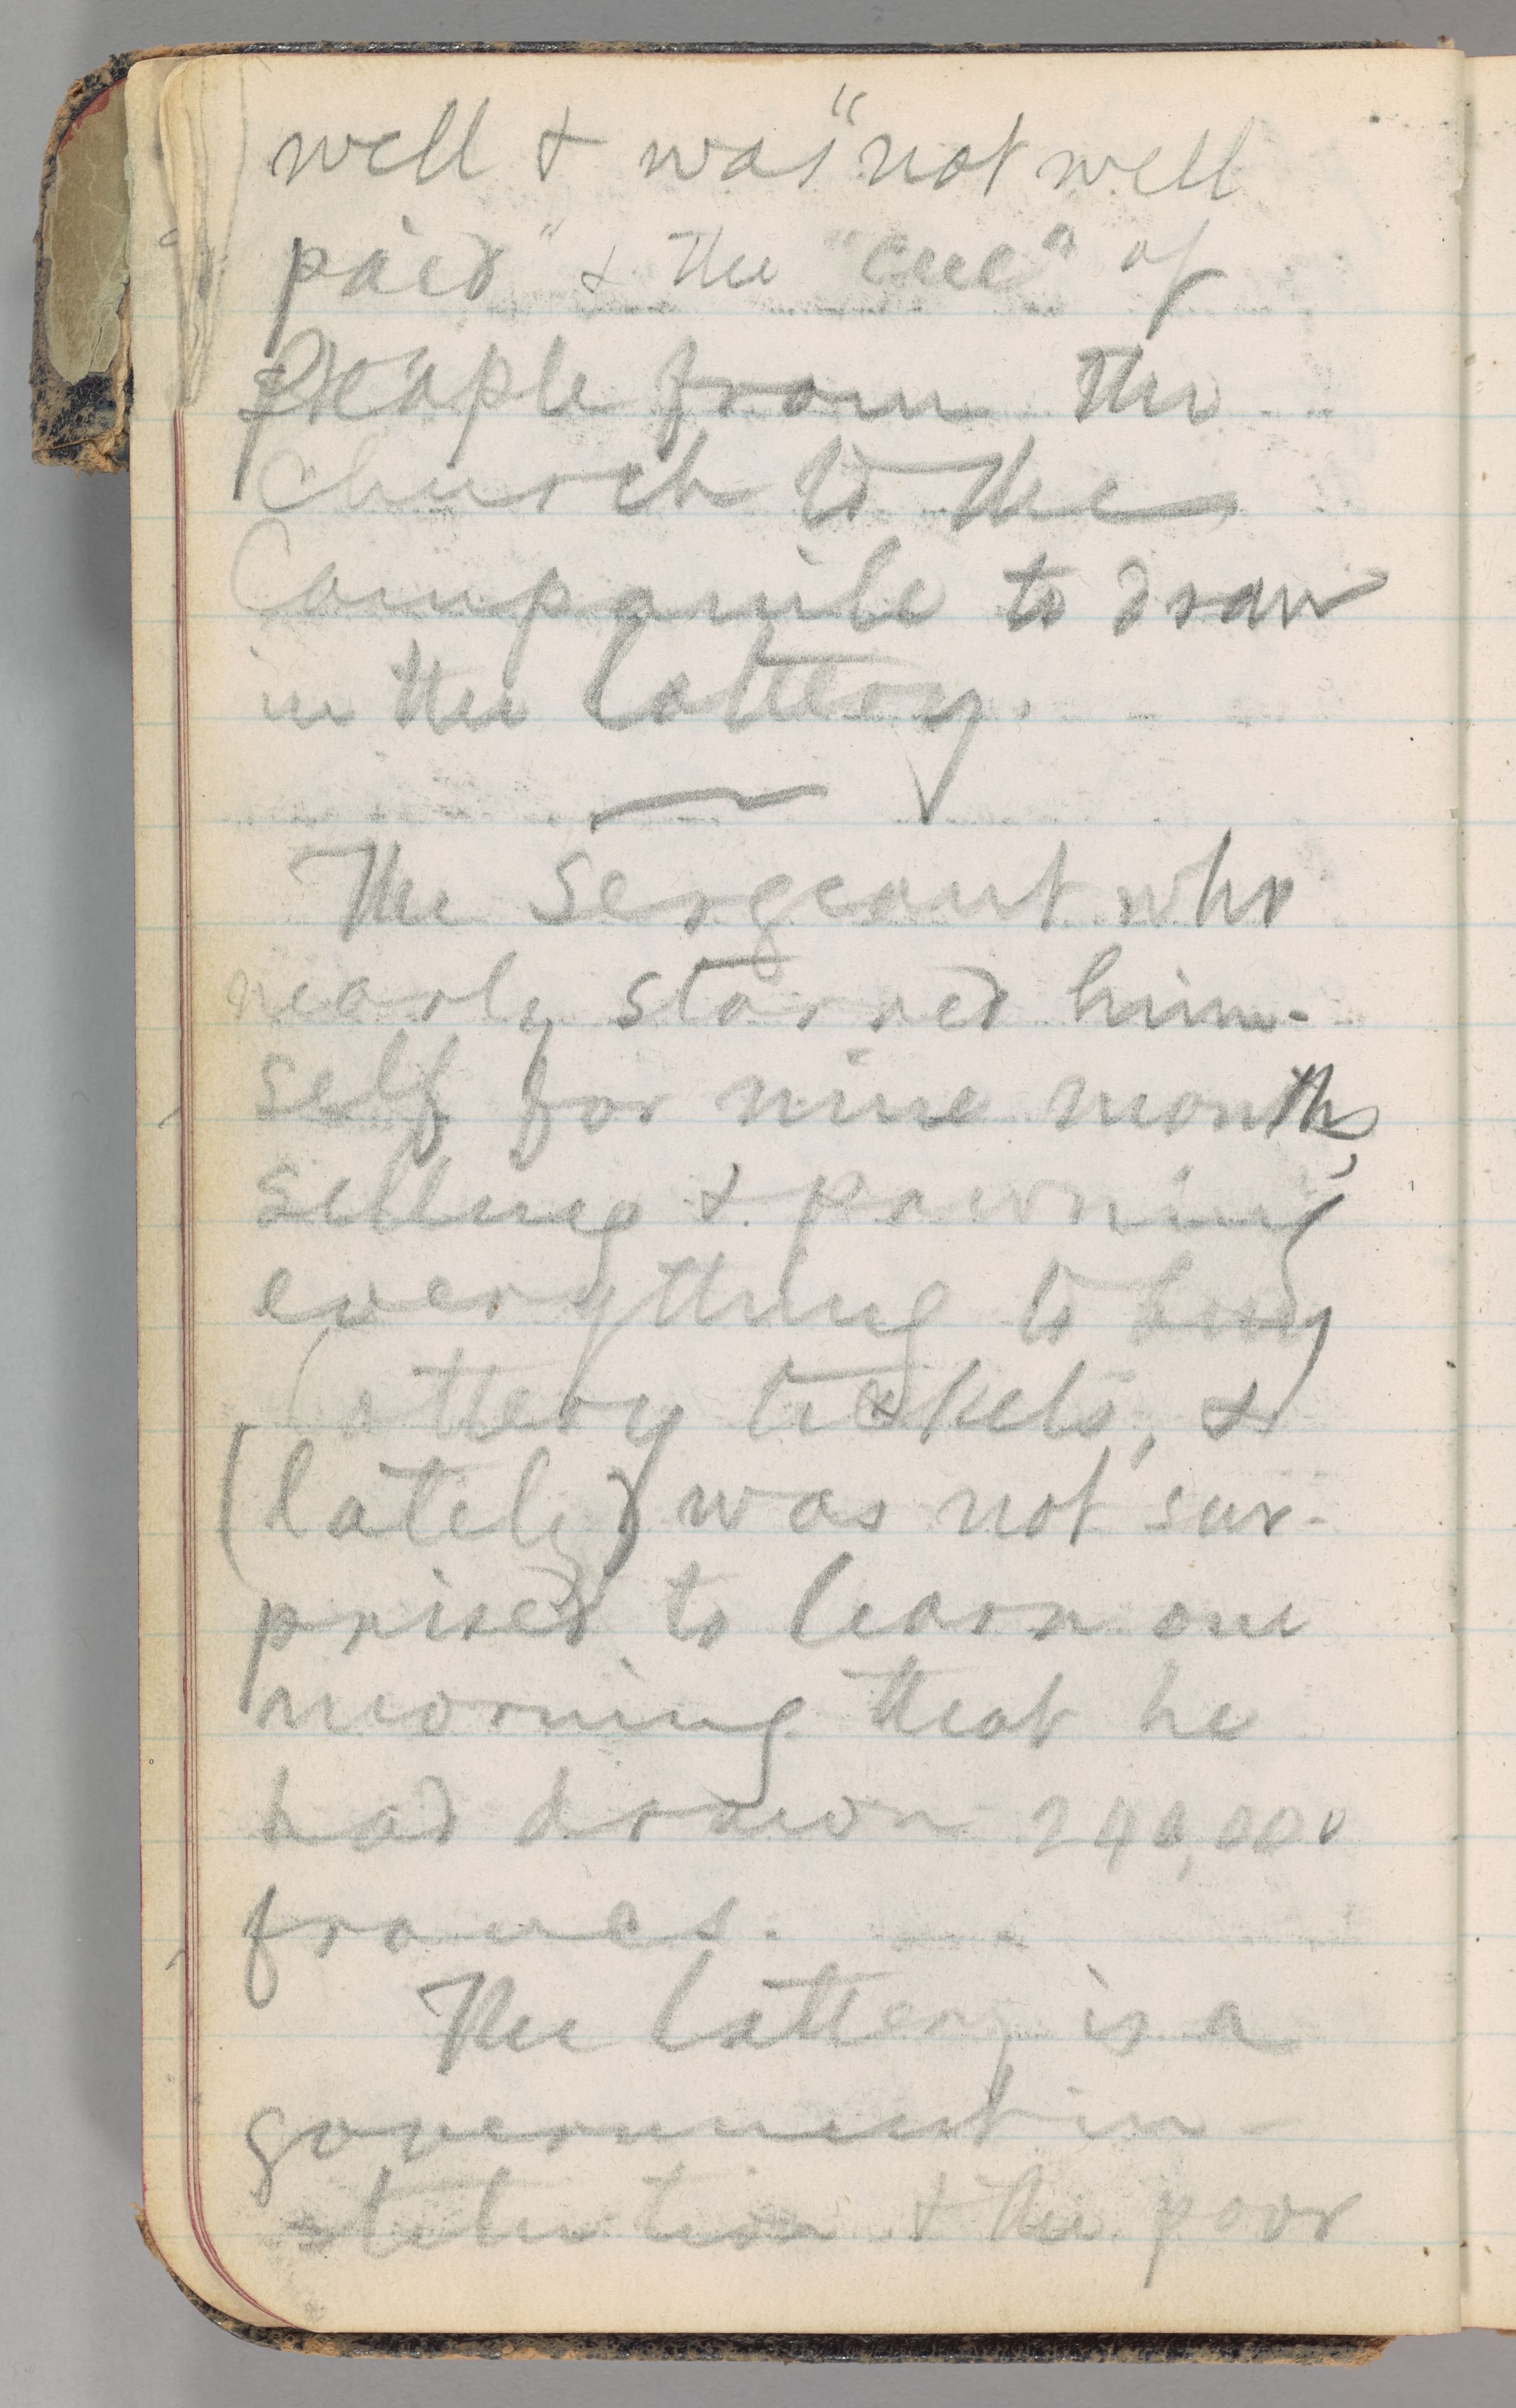 well & was "not well
paid" & the "cue" of
people from the
church to the
Campanile to draw
in the lottery.
The Sergeant who
nearly starved him-
self for nine months,
selling & pawning
everything to buy
lottery tickets, &
(lately) was not sur-
prised to learn one
morning that he
had drawn 240,000
francs.
The lottery is a
government in-
stitution & the poor